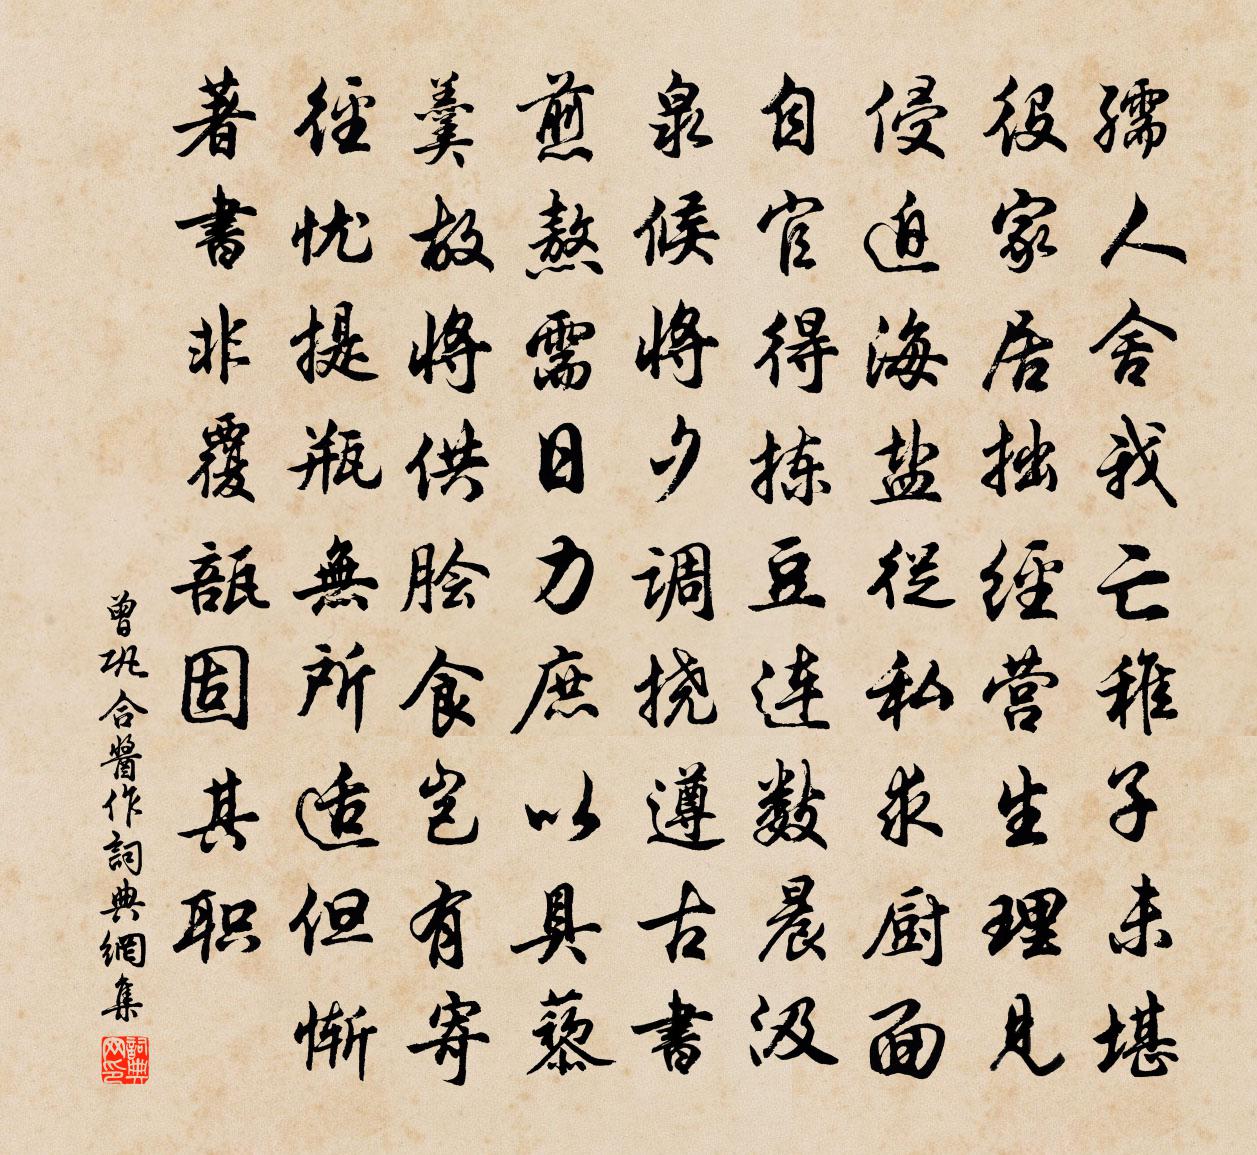 孺人舍我亡稚子未堪
役家居拙经营生理见
侵迫海盐从私求厨面
自官得拣豆连数晨汲
泉候将夕调挠遵古書
煎熬需日力庶以具藜
羹故将供脍食岂有寄
径忧提瓶無所适但惭
著書非覆瓿固其职
曾巩合醬作詞典網集
詞典网印